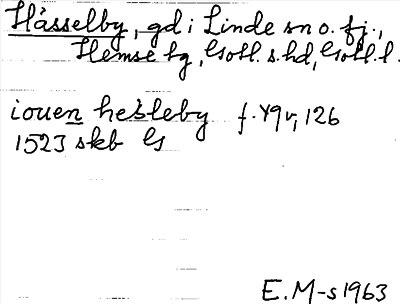 Hässelby, gd i Linde sn o. fj.,
Hemse tg, Gotl. s. hd, Gotl. l.
iouen hesleby f. 49v, 126
1523 skb G
E. M-s 1963